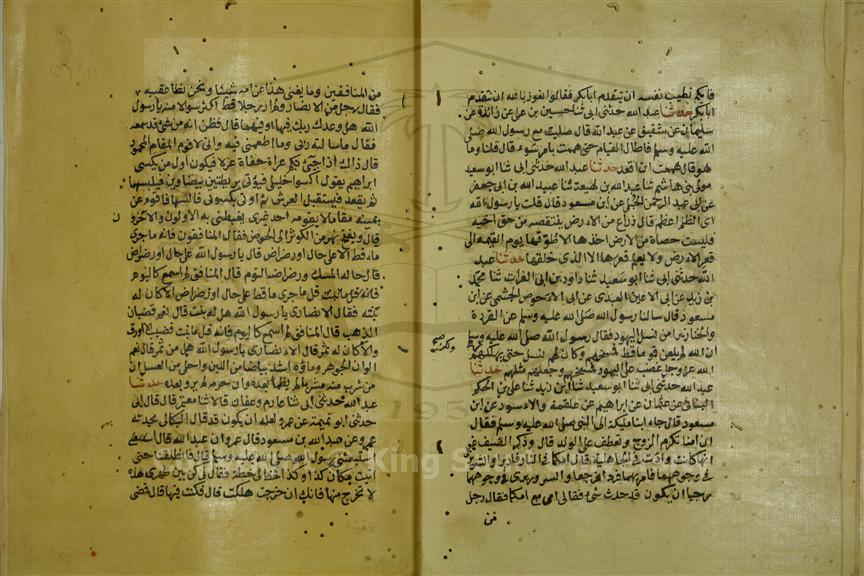 فايكم تطيب نفسه ان يتقدم ابابكر فقالوا نعوذ بالله ان نتقدم
ابابكر حدثنا عبد الله حدثني ابي ثنا حسين بن علي عن زائدة عن
سليمان عن شقيق عن عبد الله قال صليت مع رسول الله صلى
الله عليه وسلم فاطال القيام حتى هممت بامر سوء قال قلنا وما
هو قال هممت ان اقعد حدثنا عبد الله حدثني ابي ثنا ابو سعيد
مولى بني هاشم ثنا عبد الله بن لهيعة ثنا عبيد الله بن ابي جعفر
عن ابي عبد الرحمن الحبلي عن ابن مسعود قال قلت يا رسول الله
اي الظلم اعظم قال ذراع من الارض ينتقصه من حق اخيه
فليست حصاة من الارض اخذها الا طوقها يوم القيمة الى
قعر الارض ولا يعلم قعرها الا الذي خلقها حدثنا عبد
الله حدثني ابي ثنا ابو سعيد ثنا داود بن ابي الفرات ثنا محمد
بن زيد عن ابي الاعين العبدي عن ابي الاحوص الجشمي عن ابن
مسعود قال سالنا رسول الله صلى الله عليه وسلم عن القردة
والخنازير امن نسل اليهود فقال رسول الله صلى الله عليه وسلم
ان الله لم يلعن قوما قط فمسخهم وكان لهم نسل حتى يهلكهم
الله عز وجل غضب على اليهود فمسخهم وجعلهم مثلهم حدثنا
عبد الله حدثني ابي ثنا ابو سعيد ثنا ابن زيد ثنا علي بن الحكم
البناني عن عثمان عن ابراهيم عن علقمة والاسود عن ابن
مسعود قال جاء ابنا مليكة الى النبي صلى الله عليه وسلم فقال
ان امنا تكرم الزوج وتعطف على الولد قال وذكر الضيف غير
انها كانت وادت في الجاهلية قال امكما في النار فادبرا والشر
في وجوههما فامر بهما فردا فرجعا والسرور يرى في وجوههما
رجيا ان يكون قد حدث شيء فقال امي مع امكما فقال رجل
من
ولكن هذا خلق صح
من المنافقين وما يغني هذا عن امه شيئا ونحن نطا عقبيه
فقال رجل من الانصار ولم ار رجلا قط اكثر سوالا منه يا رسول
الله هل وعدك ربك فيها او فيهما قال فظن انه من شيء قد سمعه
فقال ما سالته ربي وما اطمعني فيه واني لاقوم المقام المحمود
قال ذاك اذا جيء بكم عراة حفاة غرلا فيكون اول من يكسى
ابراهيم يقول اكسوا خليلي فيؤتى بريطتين بيضاوين فيلبسهما
ثم يقعد فيستقبل العرش ثم اوتى بكسوتي فالبسها فاقوم عن
يمينه مقاما لا يقومه احد غيري يغبطني به الاولون والاخرون
قال ويفتح نهر من الكوثر الى الحوض فقال المنافقون فانه ما جرى
ماء قط الا على حال او رضراض قال يا رسول الله على حال او رضراض
قال حاله المسك ورضراضه التوم قال المنافق لم اسمع كاليوم
فانه قل ما جرى ماء قط على حال او رضراض الا كان له
نبته فقال الانصاري يا رسول الله هل له نبت قال نعم قضبان
الذهب قال المنافق لم اسمع كاليوم فانه قل ما نبت قضيب الا اورق
والا كان له ثمر قال الانصاري يا رسول الله هل من ثمر قال نعم
الوان الجوهر وماؤه اشد بياضا من اللبن واحلى من العسل ان
من شرب منه مشربا لم يظما بعده وان حرمه لم يرو بعده حدثنا
عبد الله حدثني ابي ثنا عارم وعفان قالا ثنا معتمر قال قال ابي
حدثني ابو تميمة عن عمرو لعله ان يكون قد قال البكالي يحدثه
عمرو عن عبد الله بن مسعود قال عمرو ان عبد الله قال استبعثني
رسول الله صلى الله عليه وسلم قال فانطلقنا حتى
اتيت مكان كذا وكذا فخط لي خطة فقال لي كن بين ظهري هذه
لا تخرج منها فانك ان خرجت هلكت قال فكنت فيها قال فمضى
King S
195